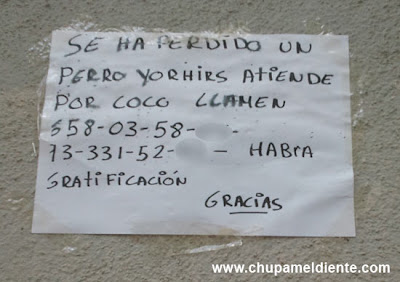 SE HA PERDIDO UN
PERRO YORHIRS ATIENDE
POR COCO LLAMEN
658-03-58-   -
73-331-52-   - HABRA
GRATIFICACIÓN
GRACIAS
www.chupameldiente.com